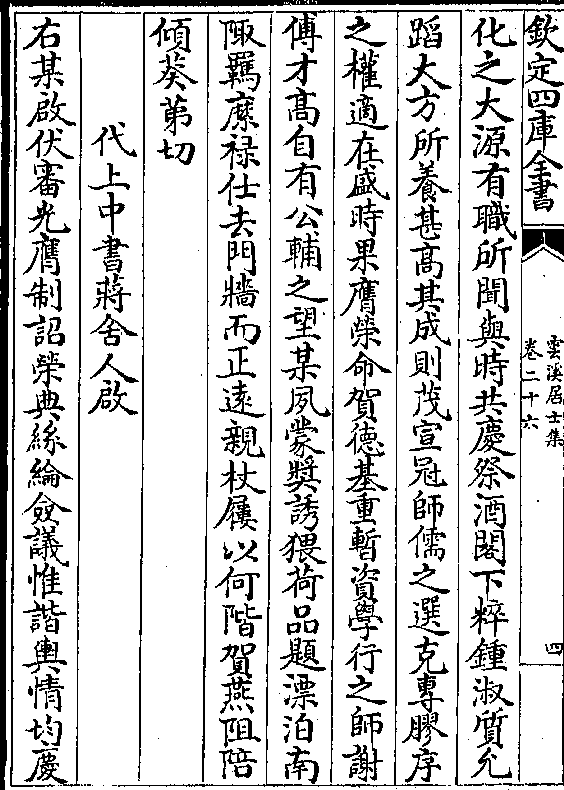 欽定四庫全書
雲溪居士集
卷二十六
四
化之大源有職所聞與時共慶祭酒閣下粹鍾淑質允
蹈大方所養甚高其成則茂宣冠師儒之選克專膠序
之權適在盛時果膺榮命賀德基重暫資學行之師謝
傅才高自有公輔之望某夙蒙奬誘猥荷品題漂泊南
陬羈縻禄仕去門牆而正遠親杖屨以何階賀燕阻陪
傾葵苐切
代上中書蔣舍人啟
右某啟伏審光膺制詔榮典絲綸僉議惟諧輿情均慶